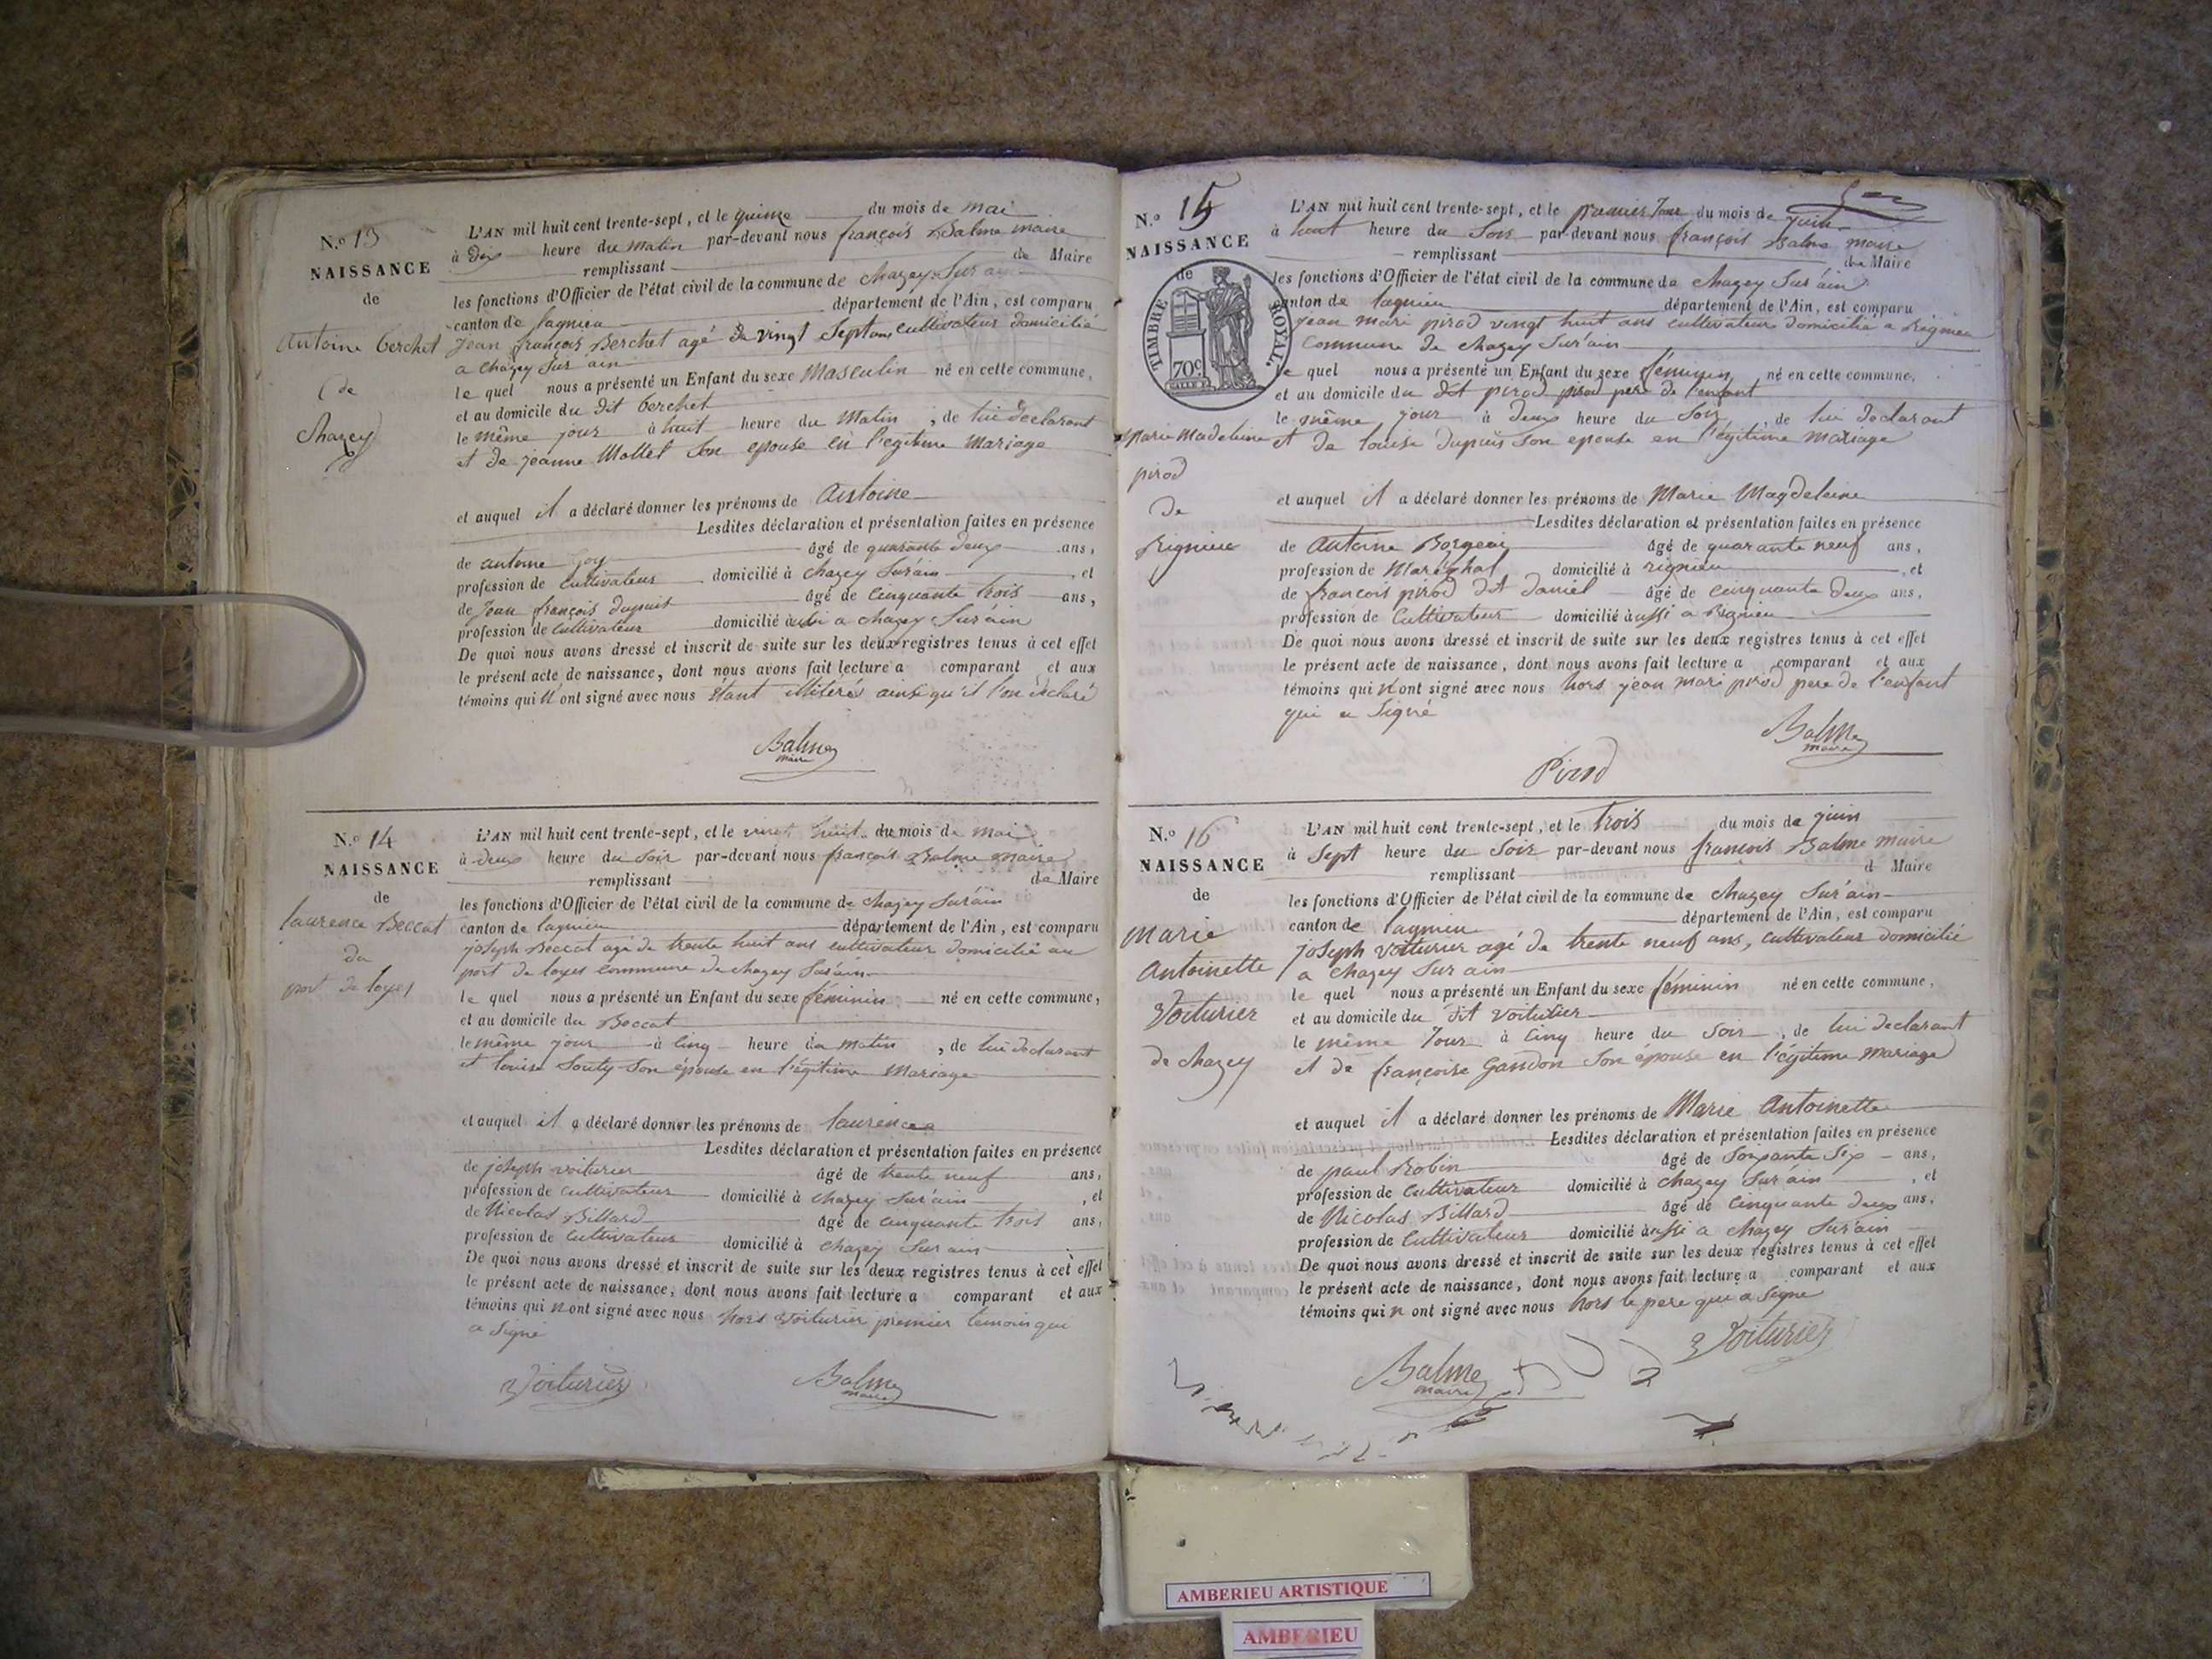 N.º 13
NAISSANCE
de
Antoine berchet
de
Chazey
L'AN mil huit cent trente-sept, et le quinze du mois de mai
à Dix heure du matin par-devant nous françois Balme maire
remplissant de Maire
les fonctions d'Officier de l'état civil de la commune de chazey Sur ain
canton de lagnieu département de l'Ain, est comparu
Jean françois Berchet agé de vingt Sept ans cultivateur domicilié
a chazey Sur ain
le quel nous a présenté un Enfant du sexe Masculin né en cette commune,
et au domicile du dit berchet
le même jour à huit heure du Matin, de lui declarant
et de jeanne Mollet Son epouse en l'egitime Mariage
et auquel il a déclaré donner les prénoms de Antoine
Lesdites déclaration et présentation faites en présence
de antoine âgé de quarante deux ans,
profession de Cultivateur domicilié à chazey Sur ain, et
de Jean françois dupuit âgé de Cinquante trois ans,
profession de Cultivateur domicilié aussi a chazey Sur ain
De quoi nous avons dressé et inscrit de suite sur les deux registres tenus à cet effet
le présent acte de naissance, dont nous avons fait lecture a comparant et aux
témoins qui n'ont signé avec nous étant illiteré ainsi qu'il l'on déclaré
Balme
maire
N.º 14
NAISSANCE
de
laurence Beccat
du
port de loyes
L'AN mil huit cent trente-sept, et le vingt huit du mois de mai
à deux heure du Soir par-devant nous françois Balme maire
remplissant de Maire
les fonctions d'Officier de l'état civil de la commune de chazey Sur ain
canton de lagnieu département de l'Ain, est comparu
joseph Beccat agé de trente huit ans cultivateur domicilié au
port de loyes commune de chazey Sur ain
le quel nous a présenté un Enfant du sexe féminin né en cette commune,
et au domicile du Beccat
le même jour à Cinq heure du matin, de lui declarant
et louise Souty Son épouse en l'égitime Mariage
et auquel il a déclaré donner les prénoms de laurence
Lesdites déclaration et présentation faites en présence
de joseph voiturier âgé de trente neuf ans,
profession de Cultivateur domicilié à chazey Sur ain, et
de Nicolas Billard âgé de cinquante trois ans,
profession de Cultivateur domicilié à chazey Sur ain
De quoi nous avons dressé et inscrit de suite sur les deux registres tenus à cet effet
le présent acte de naissance, dont nous avons fait lecture a comparant et aux
témoins qui n ont signé avec nous hors voiturier premier temoin qui
a Signé
Voiturier
Balme
maire
N.º 15
NAISSANCE
de
TIMBRE ROYAL
70c
Marie Madeleine
pirod
de
Rignieu
L'AN mil huit cent trente-sept, et le premier Jour du mois de juin
à huit heure du Soir par-devant nous françois Balme maire
remplissant de Maire
les fonctions d'Officier de l'état civil de la commune de chazey Sur ain
canton de lagnieu département de l'Ain, est comparu
jean mari pirod vingt huit ans cultivateur domicilié a Rignieu
Commune de chazey Sur ain
le quel nous a présenté un Enfant du sexe féminin né en cette commune,
et au domicile du dit pirod pirod pere de l'enfant
le même jour à deux heure du Soir, de lui declarant
et de louise dupuis Son epouse en l'égitime mariage
et auquel il a déclaré donner les prénoms de Marie Magdeleine
Lesdites déclaration et présentation faites en présence
de Antoine âgé de quarante neuf ans,
profession de Maréchal domicilié à rignieu, et
de francois pirod dit daniel âgé de cinquante deux ans,
profession de Cultivateur domicilié aussi a Rignieu
De quoi nous avons dressé et inscrit de suite sur les deux registres tenus à cet effet
le présent acte de naissance, dont nous avons fait lecture a comparant et aux
témoins qui n'ont signé avec nous hors jean mari pirod pere de l'enfant
qui a Signé
Balme
maire
Pirod
N.º 16
NAISSANCE
de
Marie
Antoinette
Voiturier
de Chazey
L'AN mil huit cent trente-sept, et le trois du mois de juin
à Sept heure du Soir par-devant nous francois Balme maire
remplissant d Maire
les fonctions d'Officier de l'état civil de la commune de chazey Sur ain
canton de lagnieu département de l'Ain, est comparu
joseph Voiturier agé de trente neuf ans, cultivateur domicilié
a chazey Sur ain
le quel nous a présenté un Enfant du sexe féminin né en cette commune,
et au domicile du dit voiturier
le même Jour à Cinq heure du Soir, de lui declarant
et de françoise Gandon Son épouse en l'égitime Mariage
et auquel il a déclaré donner les prénoms de Marie Antoinette
Lesdites déclaration et présentation faites en présence
de paul Robin âgé de Soixante Six ans,
profession de Cultivateur domicilié à chazey Sur ain, et
de Nicolas Billard âgé de Cinquante deux ans,
profession de Cultivateur domicilié aussi a chazey Sur ain
De quoi nous avons dressé et inscrit de suite sur les deux registres tenus à cet effet
le présent acte de naissance, dont nous avons fait lecture a comparant et aux
témoins qui n ont signé avec nous hors le pere qui a Signe
Voiturier
Balme
maire
AMBERIEU ARTISTIQUE
AMBERIEU